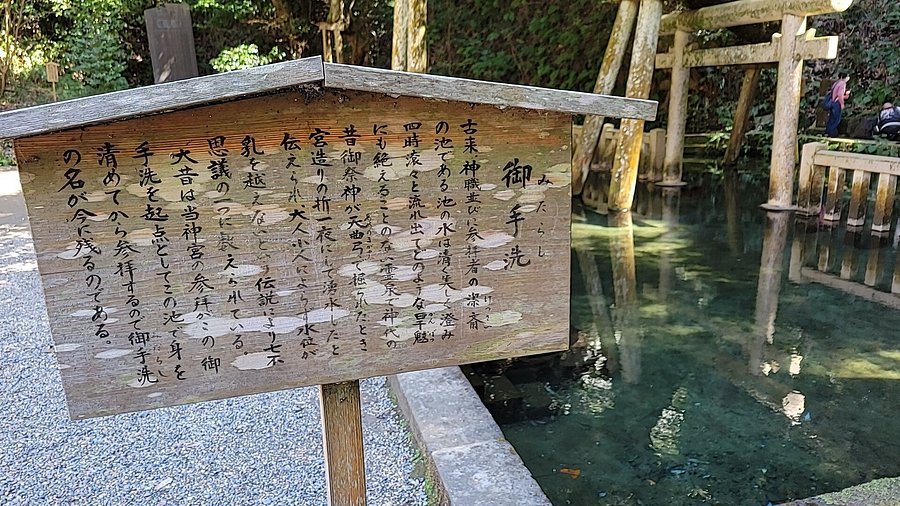 御手洗
みたらし
古来神職並びに参拝者の潔斎
けっさい
の池である池の水は清く美しく澄み
四時滾々と流れ出てどのような旱魃
かんばつ
にも絶えることのない霊泉で神代の
昔御祭神が天曲弓で掘られたとも
宮造りの折一夜にして湧水したとも
伝えられ大人小人によらず水位が
乳を越えないという伝説により七不
思議の一つに数えられている。
大昔は当神宮の参拝がこの御
手洗を起点としてこの池で身を
清めてから参拝するので御手洗
みたらし
の名が今に残るのである。